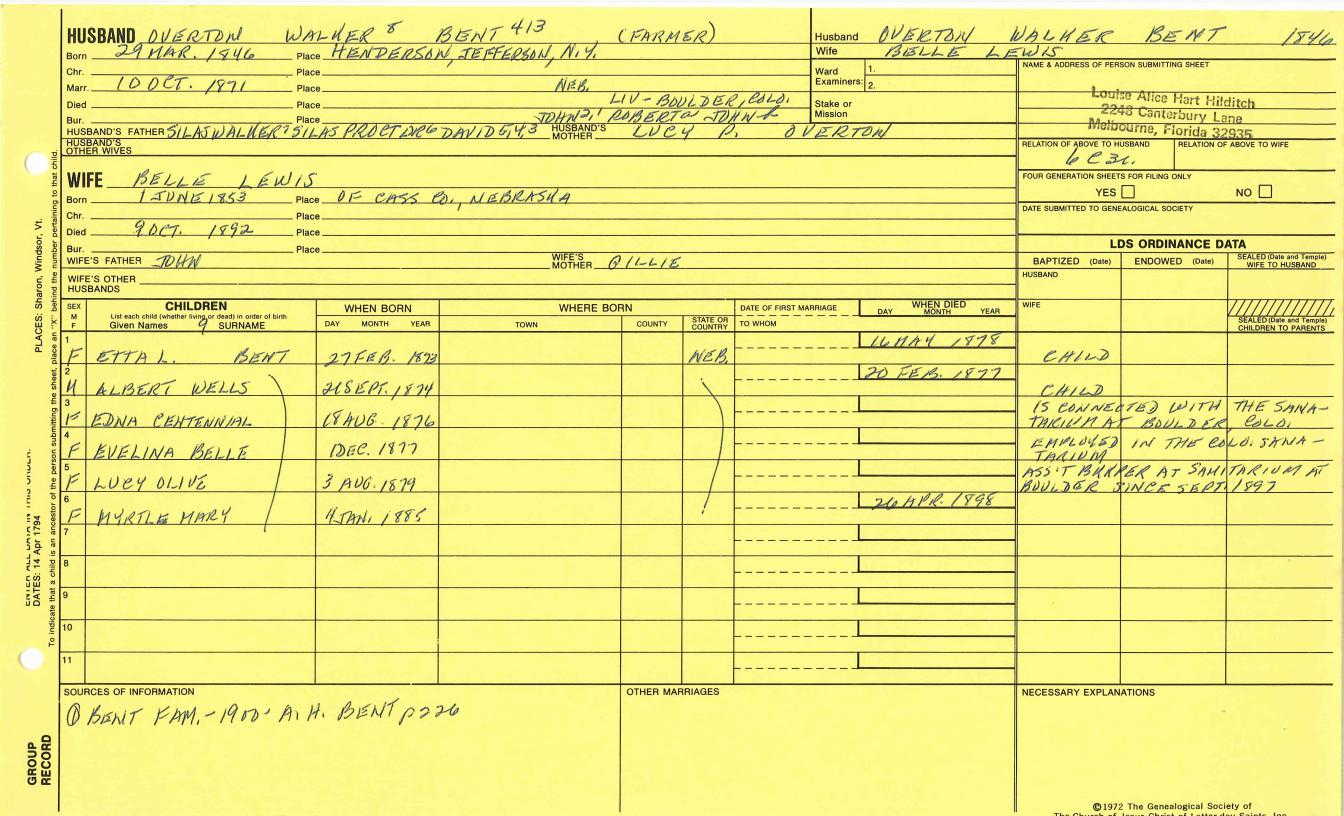 HUSBAND OVERTON WALKER 8 BENT 413 (FARMER)
Born 29 MAR. 1846 Place HENDERSON, JEFFERSON, N.Y.
Chr. Place
Marr. 10 OCT. 1871 Place NEB.
Died Place LIV - BOULDER, COLO.
Bur. Place JOHN 2,1 ROBERT JOHN
HUSBAND'S FATHER SILAS WALKER 7 SILAS PROCTOR 6 DAVID 5,4,3 HUSBAND'S MOTHER LUCY P. OVERTON
HUSBAND'S OTHER WIVES
Husband OVERTON WALKER BENT 1846
Wife BELLE LEWIS
Ward Examiners: 1.
2.
Stake or Mission
NAME & ADDRESS OF PERSON SUBMITTING SHEET
Louise Alice Hart Hilditch
2248 Canterbury Lane
Melbourne, Florida 32935
RELATION OF ABOVE TO HUSBAND RELATION OF ABOVE TO WIFE
6 C 3r.
FOUR GENERATION SHEETS FOR FILING ONLY
YES NO
DATE SUBMITTED TO GENEALOGICAL SOCIETY
WIFE BELLE LEWIS
Born 1 JUNE 1853 Place OF CASS CO., NEBRASKA
Chr. Place
Died 9 OCT. 1892 Place
Bur. Place
WIFE'S FATHER JOHN WIFE'S MOTHER GILLIE
WIFE'S OTHER HUSBANDS
LDS ORDINANCE DATA
BAPTIZED (Date) ENDOWED (Date) SEALED (Date and Temple) WIFE TO HUSBAND
HUSBAND
WIFE
SEALED (Date and Temple) CHILDREN TO PARENTS
SEX M F CHILDREN WHEN BORN WHERE BORN DATE OF FIRST MARRIAGE WHEN DIED
List each child (whether living or dead) in order of birth
Given Names 9 SURNAME DAY MONTH YEAR TOWN COUNTY STATE OR COUNTRY TO WHOM DAY MONTH YEAR
1 16 MAY 1878
F ETTA L. BENT 27 FEB. 1873 NEB. CHILD
2 20 FEB. 1877
M ALBERT WELLS SEPT. 1874 CHILD
3 IS CONNECTED WITH THE SANA-
F EDNA CENTENNIAL 18 AUG. 1876 TARIUM AT BOULDER, COLO.
4 EMPLOYED IN THE COLO. SANA-
F EVELINA BELLE 1 DEC. 1877 TARIUM
5 ASS'T AT SANITARIUM AT
F LUCY OLIVE 3 AUG. 1879 BOULDER SINCE SEPT. 1897
6 26 APR. 1898
F MYRTLE MARY 4 JAN. 1885
7
8
9
10
11
SOURCES OF INFORMATION OTHER MARRIAGES NECESSARY EXPLANATIONS
① BENT FAM. - 1900 - A. H. BENT p 226
©1972 The Genealogical Society of
The Church of Jesus Christ of Latter-day Saints, Inc.
PLACES: Sharon, Windsor, Vt.
ENTER ALL DATA IN THIS ORDER:
DATES: 14 Apr 1794
To indicate that a child is an ancestor of the person submitting the sheet, place an "X" behind the number pertaining to that child.
GROUP RECORD